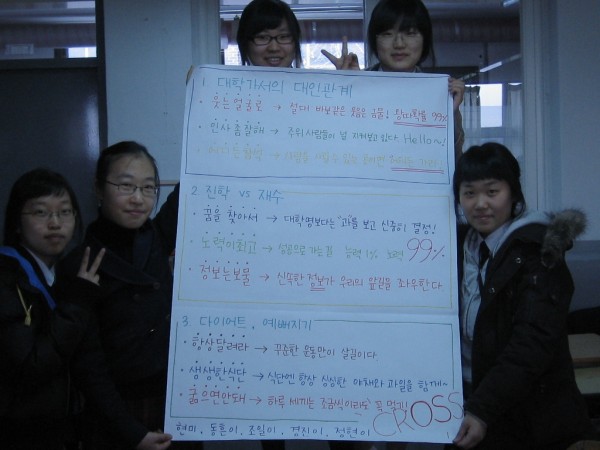 1. 대학가서의 대인관계
· 웃는얼굴로 → 절대 바보같은 웃음은 금물! 왕따확률 99%
· 인사 좀 잘해 → 주위 사람들이 널 지켜보고 있다. Hello~!
2. 진학 vs 재수
· 꿈을 찾아서 → 대학명보다는 "과"를 보고 신중히 결정!
· 노력이최고 → 성공으로 가는길 능력 1% 노력 99%
· 정보는보물 → 신속한 정보가 우리의 앞길을 좌우한다
3. 다이어트, 예뻐지기
· 항상달려라 → 꾸준한 운동만이 살길이다
· 생생한식단 → 식단엔 항상 싱싱한 야채와 과일을 함께~
· 굶으면안돼 → 하루 세끼는 조금씩이라도 꼭 먹기!
CROSS
현미, 동흔이, 조일이, 경진이, 정현이